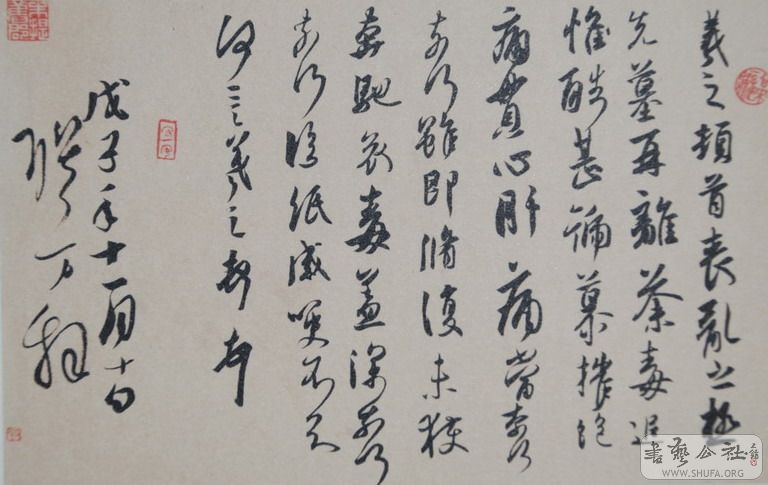 羲之頓首喪亂之極
先墓再離荼毒追
惟酷甚號慕摧絕
痛貫心肝痛當奈何
奈何雖即脩復未獲
奔馳哀毒益深奈何
奈何臨紙感哽不知
何言羲之頓首頓首
戊子年十一月十日
万
書藝公社
WWW.SHUFA.ORG